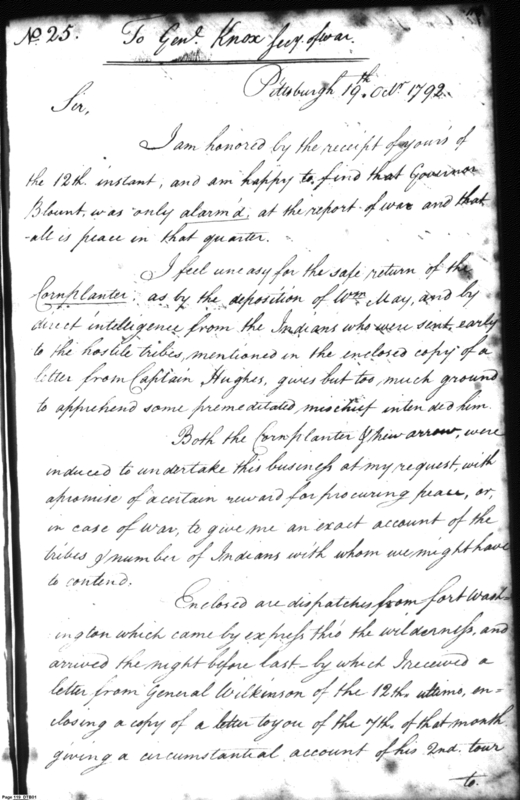 No. 25. To Genl. Knox Secy. of war.
Pittsburgh 19th. Octr. 1792.
Sir,
I am honored by the receipt of yours of
the 12th instant, and am happy to find that Governor
Blount, was only alarm'd, at the report of war and that
all is peace in that quarter.
I feel uneasy for the safe return of the
Cornplanter; as by the deposition of Wm. May, and by
direct intelligence from the Indians who were sent early
to the hostile tribes, mentioned in the enclosed copy of a
letter from Captain Hughes, gives but too much ground
to apprehend some premeditated mischief intended him.
Both the Cornplanter & New arrow, were
induced to undertake this business at my request, with
a promise of a certain reward for procuring peace, or,
in case of war, to give me an exact account of the
tribes & number of Indians with whom we might have
to contend.
Enclosed are dispatches from fort Wash-
ington which came by express thro the wilderness, and
arrived the night before last—by which I received a
letter from General Wilkinson of the 12th. ultimo, en=
closing a copy of a letter to you of the 7th. of that month
giving a circumstantial account of his 2nd. tour
to.
Page 110 DTB01